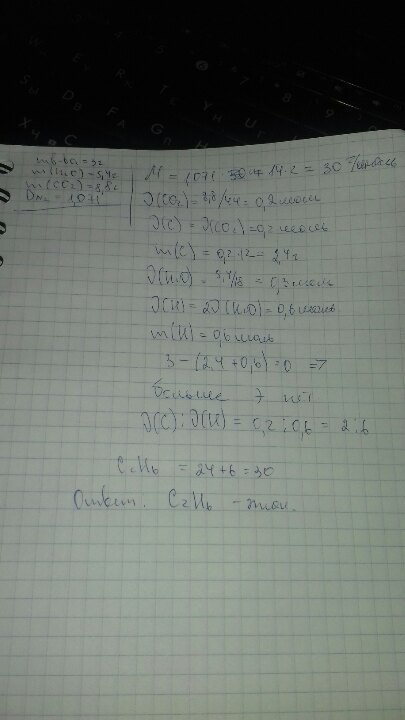 m в-ва = 3г
m(H₂O) = 5,4г
m(CO₂) = 8,8г
D N₂ = 1,071
M = 1,071 · 14·2 = 30 г/моль
ν(CO₂) = 8,8/44 = 0,2 моль
ν(C) = ν(CO₂) = 0,2 моль
m(C) = 0,2·12 = 2,4г
ν(H₂O) = 5,4/18 = 0,3 моль
ν(H) = 2ν(H₂O) = 0,6 моль
m(H) = 0,6 моль
3 – (2,4+0,6) = 0 =>
больше э нет
ν(C) : ν(H) = 0,2 : 0,6 = 2 : 6
C₂H₆ = 24+6 = 30
Ответ. C₂H₆ – этан.